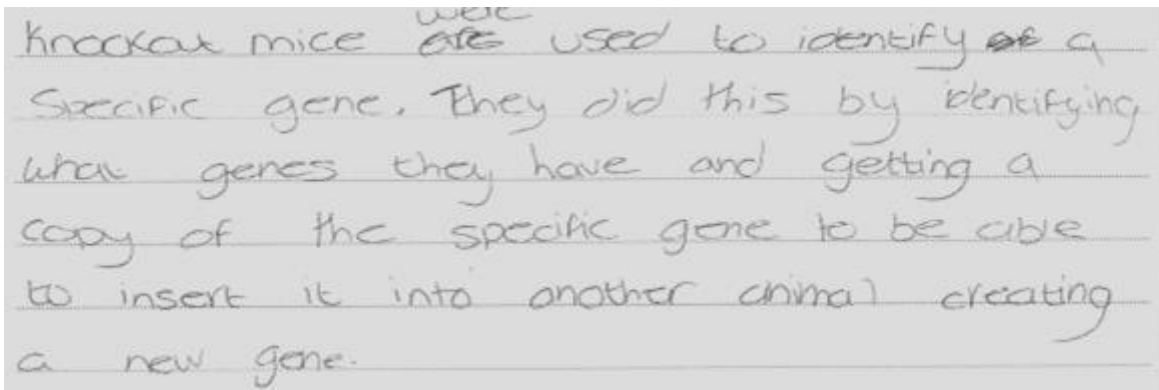 Knockout mice were used to identify a
Specific gene. They did this by identifying
what genes they have and getting a
copy of the specific gene to be able
to insert it into another animal creating
a new gene.